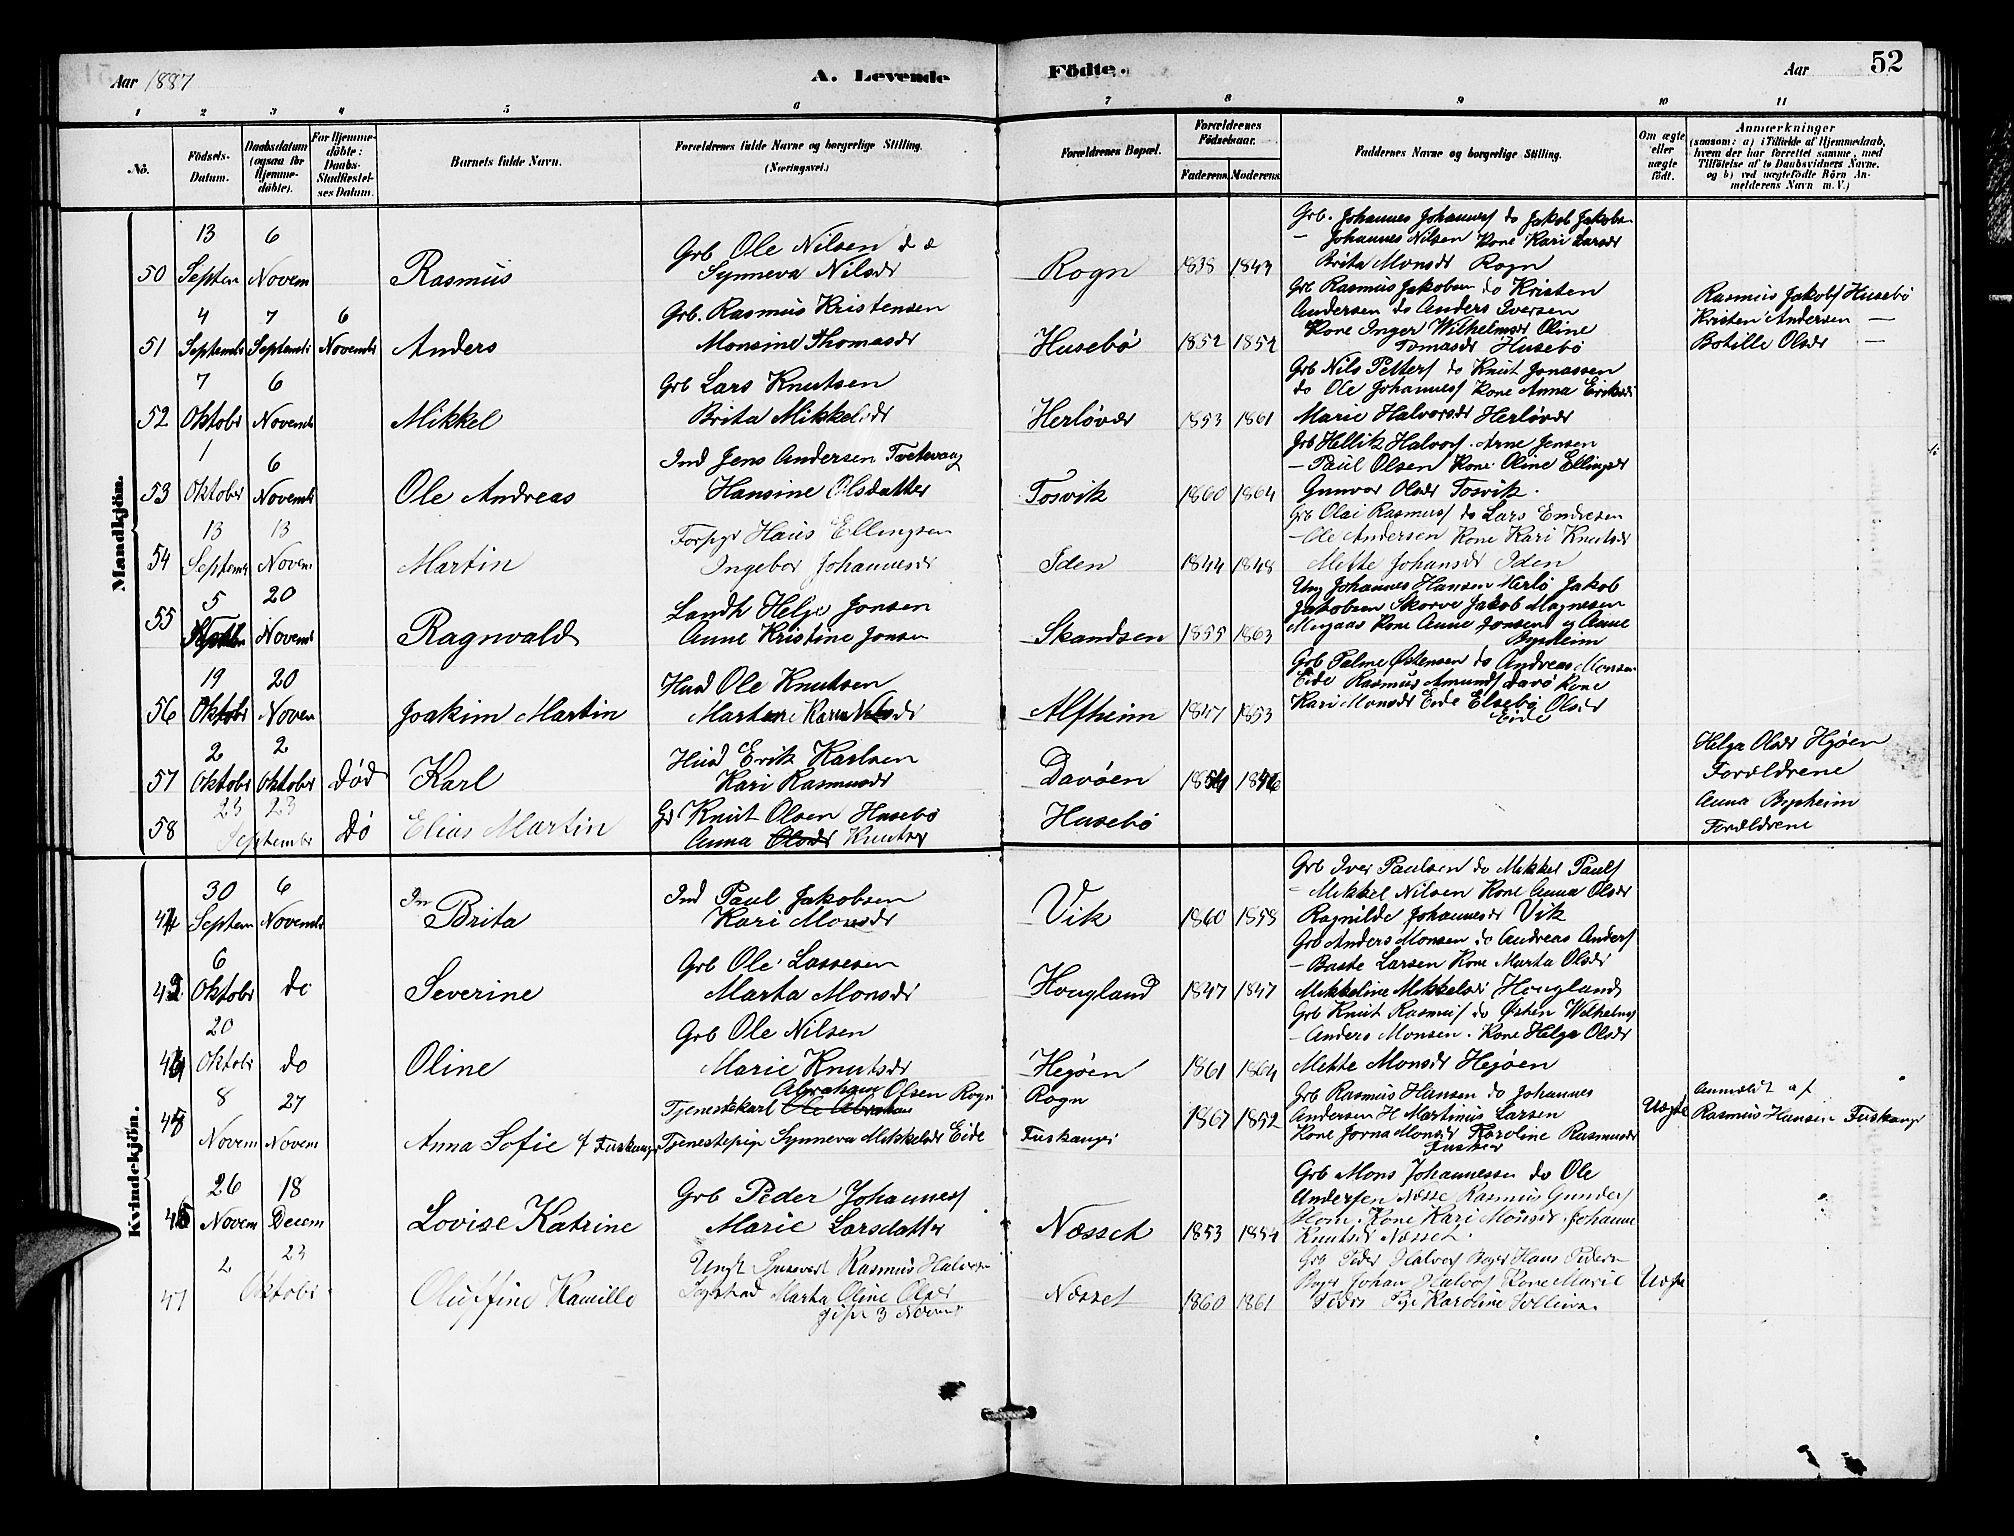 Aar 1887
A. Levende
Födte.
Aar
52
1 2 3 4 5 6 7 8 9 10 11
No.
Födsels-Datum.
Daabsdatum (ogsaa for Hjemmedöbte).
For Hjemmedöbte: Daabs-Stadfæstelses Datum.
Barnets fulde Navn.
Forældrenes fulde Navne og borgerlige Stilling. (Næringsvei.)
Forældrenes Bopæl.
Forældrenes Födselsaar.
Faderens. Moderens.
Faddernes Navne og borgerlige Stilling.
Om ægte eller uægte födt.
Anmærkninger
(saasom: a) i Tilfælde af Hjemmedaab, hvem der har forrettet samme, med Tilföielse af to Daabsvidners Navne, og b) ved uægtefödte Börn Anmelderens Navn m. V.)
Mandkjön.
50 13 Septem 6 Novem Rasmus
Grb Ole Nilsen
Synneva Nilsdr
Rogn 1838 1843
Grb. Johannes Johannesf do Jakob Jakobs
— Johannes Nilsen Kone Kari Larsdr
Brita Monsdr Rogn
51 4 Septembr 7 Septembr 6 Novembr Anders
Grb. Rasmus Kristensen
Monsine Thomasdr
Husebö 1852 1852
Grb Rasmus Jakobsen do Kristen
Andersen do Anders Iversen
Kone Inger Wilhelmsdr Oline
Tomasdr Husebö
Rasmus Jakobs Husebö
Kristen Andersen —
Botille Olsdr —
52 7 Oktobr 6 Novembr Mikkel
Grb Lars Knutsen
Brita Mikkelsdr
Herlövær 1853 1861
Grb Nils Petters do Knut Jonassen
do Ole Johannesf Kone Anna Eriksdr
Marie Halvorsdr Herlövær
53 1 Oktober 6 Novembr Ole Andreas
Ind Jens Andersen Tvetevaag
Hansine Olsdatter
Tosvik 1860 1864
Grb Hellik Halvorf. Arne Jensen
— Paul Olsen Kone Oline Ellingsdr
Gunvor Olsdr Tosvik.
54 13 Septembr 13 Novem Martin
Forpgr Hans Ellingsen
Ingebor Johannesdr
Iden 1844 1848
Grb Olai Rasmusf do Lars Endresen
— Ole Andersen Kone Kari Knutsdr
Mette Johansdr Iden
55 5 20 Novembr Ragnvald
Landh Helge Jonsen
Anne Kristine Jonsen
Skandsen 1855 1863
Ung Johannes Hansen Herlö Jakob
Jakobsen Skorve Jakob Magnesen
Kone Anne Jonsen og Anne
Bypheim
56 19 Oktobr 20 Noven Joakim Martin
Husd Ole Knutsen
Alfheim 1847 1853
Grb Palme Östensen do Andreas Monsen
Eide Rasmus Amundf Davö Kone
Kari Monsdr Eide Elsebö Olsdr
Eide
57 2 Oktober 2 Oktober död Karl
Husd Erik Karlsen
Kari Rasmusdr
Davöen
Helga Olsdr Hjöen
Forældrene
58 23 23 September Dö Elias Martin
Gr Knut Olsen Husebö
Anna Olsdr Knutsdr
Husebö
Anna Bypheim
Forældrene
Kvindekjön.
30 Septem 6 Novembr Brita
Ind Paul Jakobsen
Kari Monsdr
Vik 1860 1858
Grb Iver Paulsen do Mikkel Paulf
— Mikkel Nilsen Kone Anna Olsdr
Ragnilde Johannesdr Vik
6 Oktobr do Severine
Grb Ole Lassesen
Marta Monsdr
Hougland 1847 1847
Grb Anders Monsen do Andreas Anderf
— Baste Larsen Kone Marta Olsdr
Mikkeline Mikkelsdr Hougland
20 Oktobr do Oline
Grb Ole Nilsen
Marie Knutsdr
Hejöen 1861 1864
Grb Knut Rasmusf do Östen Wilhelmsf
— Anders Monsen. Kone Helga Olsdr
Mette Monsdr Hejöen
8 Novem 27 Novem Anna Sofie f Fuskanger
Tjenestekarl Abraham Olsen Rogn
Tjenestepige Synneva Mikkelsdr Eide
Rogn
Fuskanger
1867 1852
Grb Rasmus Hansen do Johannes
Andersen H Martinus Larsen
Kone Jorna Monsdr Karoline Rasmusdr
Uægte
Anmeldt af
Rasmus Hansen Fuskanger
26 Novem 18 Decem Lovise Katrine
Grb Peder Johannesf
Marie Larsdatter
Næsset 1853 1854
Grb Mons Johannessen do Ole
Andersen Næsse Rasmus Gunderf
Kone Kari Monsdr Johanne
Knutsdr Næsset.
47 2 23 Oktober Oluffine Kamille
Ungk Rasmus Halvorsen
Marta Oline Olsdr
3 Novem
Næsset 1860 1861
Grb Peder Halvorf Hans Pedersen
Johan Halvorf Kone Marie
Pige Karoline
Uægte